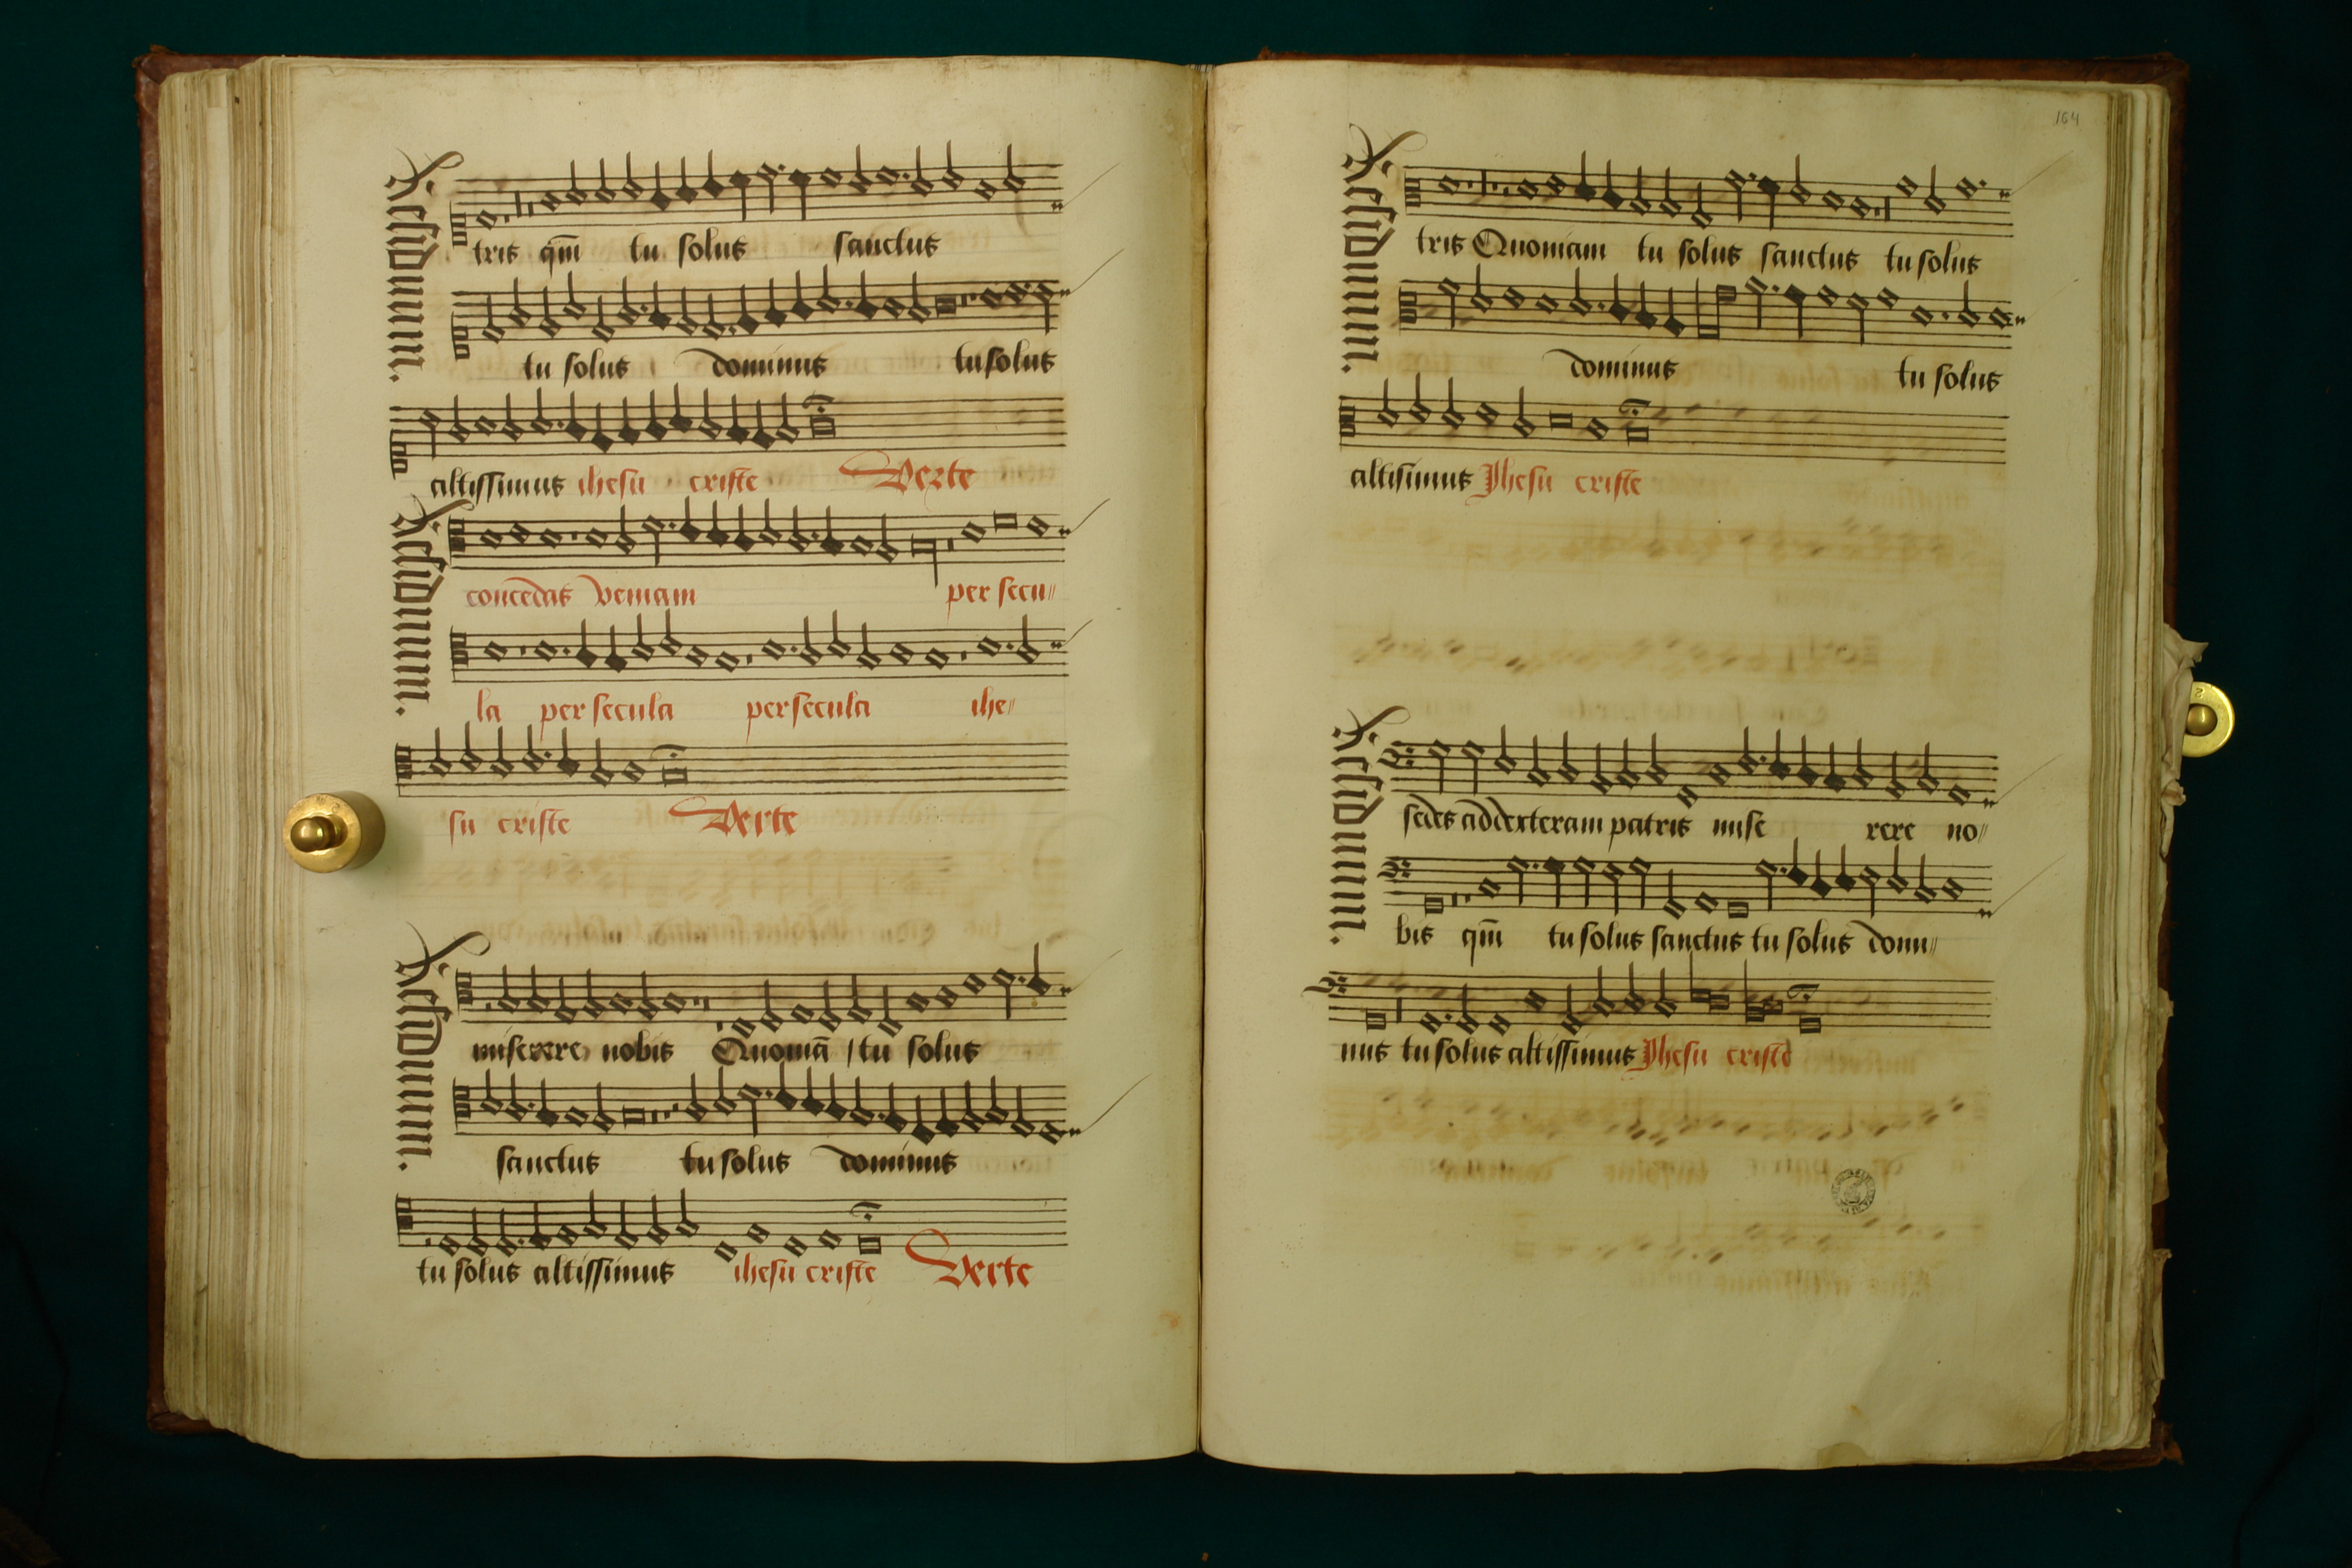 Residuum.
tris qm̄ tu solus sanctus
tu solus dominus tu solus
altissimus ihesu criste Verte
Residuum.
concedas veniam per secu〃
la per secula per secula ihe〃
su criste Verte
Residuum.
miserere nobis Quoniā tu solus
sanctus tu solus dominus
tu solus altissimus ihesu criste Verte
164
Residuum.
tris Quoniam tu solus sanctus tu solus
dominus tu solus
altisimus Jhesu criste
Residuum.
sedes ad dexteram patris mise rere no〃
bis qm̄ tu solus sanctus tu solus domi〃
nus tu solus altissimus Jhesu criste